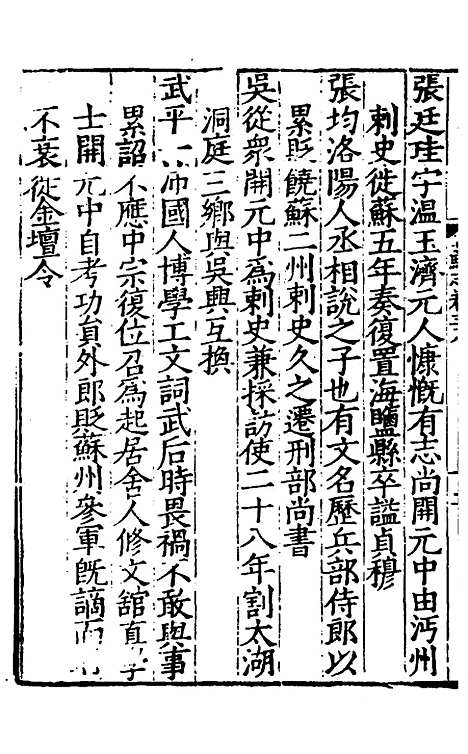 張廷珪字温玉濟元人慷慨有志尚開元中由沔州
刺史徙蘇五年奏復置海鹽縣卒謚貞穆
張均洛陽人丞相說之子也有文名歷兵部侍郎以
累貶饒蘇二州刺史久之遷刑部尚書
吳從衆開元中爲刺史兼採訪使二十八年割太湖
洞庭三鄉與吳興互換
武平一沛國人博學工文詞武后時畏禍不敢與事
累詔不應中宗復位召爲起居舍人修文舘直學
士開元中自考功員外郎貶蘇州參軍旣謫而名
不衰從金壇令